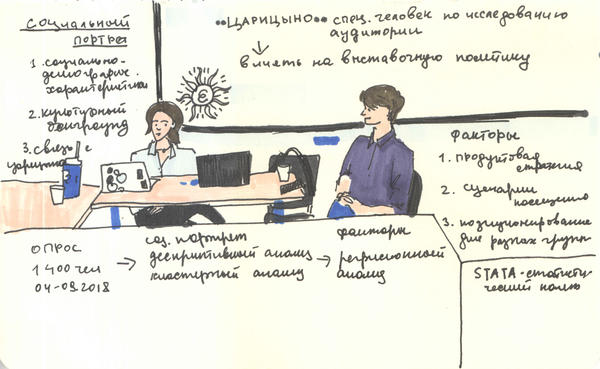 СОЦИАЛЬНЫЙ
ПОРТРЕТ
1. СОЦИАЛЬНО-
ДЕМОГРАФИЧ.
ХАРАКТЕРИСТИКИ
2. КУЛЬТУРНЫЙ
БЭКГРАУНД
3. СВЯЗЬ С
ЦАРИЦЫНО
"ЦАРИЦЫНО" СПЕЦ. ЧЕЛОВЕК ПО ИССЛЕДОВАНИЮ
АУДИТОРИИ
↓
ВЛИЯТЬ НА ВЫСТАВОЧНУЮ ПОЛИТИКУ
ФАКТОРЫ
1. ПРОДУКТОВАЯ
СТРАТЕГИЯ
2. СЦЕНАРИИ
ПОСЕЩЕНИЯ
3. ПОЗИЦИОНИРОВАНИЕ
ДЛЯ РАЗНЫХ ГРУПП
ОПРОС
1400 ЧЕЛ
04-09.2018
→
СОЦ. ПОРТРЕТ
ДЕСКРИПТИВНЫЙ АНАЛИЗ
КЛАСТЕРНЫЙ АНАЛИЗ
→
ФАКТОРЫ
РЕГРЕССИОННЫЙ
АНАЛИЗ
STATA - СТАТИСТИ-
ЧЕСКИЙ